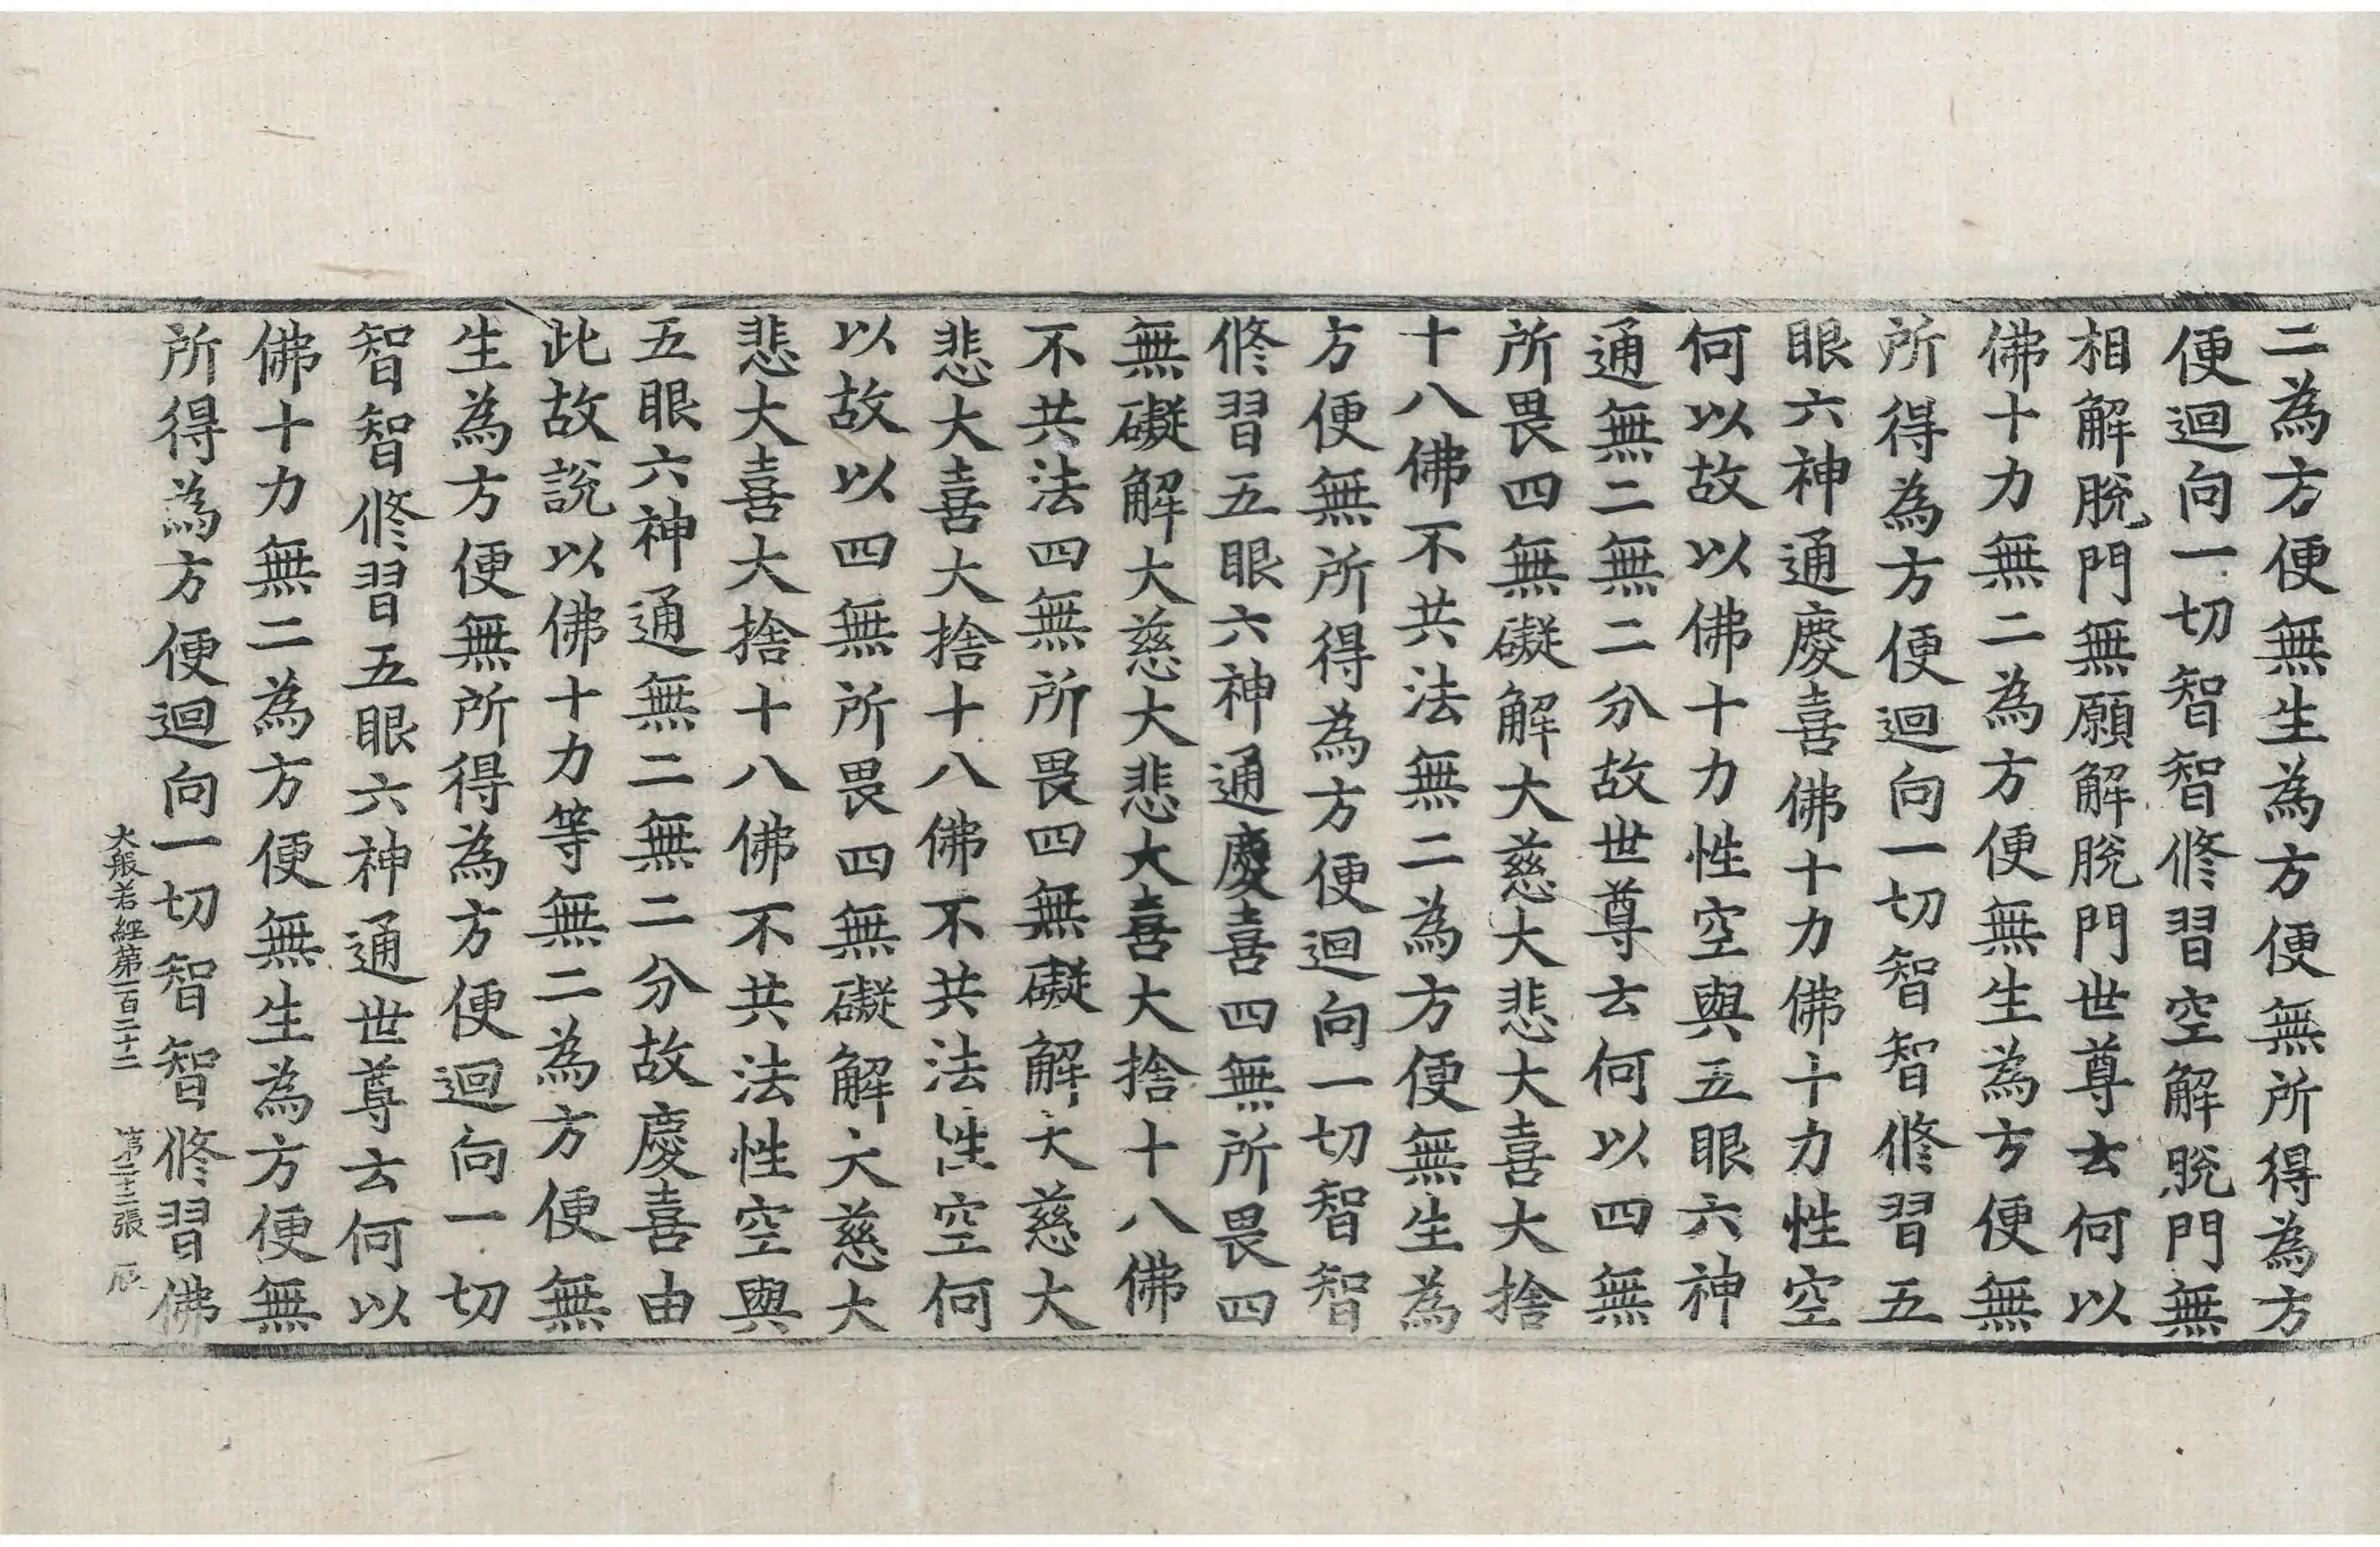 二為方便無生為方便無所得為方
便迴向一切智智修習空解脫門無
相解脫門無願解脫門世尊云何以
佛十力無二為方便無生為方便無
所得為方便迴向一切智智修習五
眼六神通慶喜佛十力佛十力性空
何以故以佛十力性空與五眼六神
通無二無二分故世尊云何以四無
所畏四無礙解大慈大悲大喜大捨
十八佛不共法無二為方便無生為
方便無所得為方便迴向一切智智
修習五眼六神通慶喜四無所畏四
無礙解大慈大悲大喜大捨十八佛
不共法四無所畏四無礙解大慈大
悲大喜大捨十八佛不共法性空何
以故以四無所畏四無礙解大慈大
悲大喜大捨十八佛不共法性空與
五眼六神通無二無二分故慶喜由
此故說以佛十力等無二為方便無
生為方便無所得為方便迴向一切
智智修習五眼六神通世尊云何以
佛十力無二為方便無生為方便無
所得為方便迴向一切智智修習佛
大般若經第一百二十二 第二十二張 辰